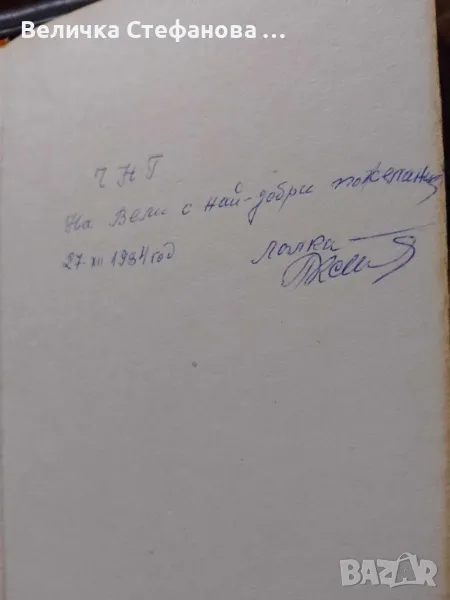 Величка Стефанова ...
ЧНГ
На Вели с най-добри пожелания
27-XII 1984 год
Лалка
BAZAR